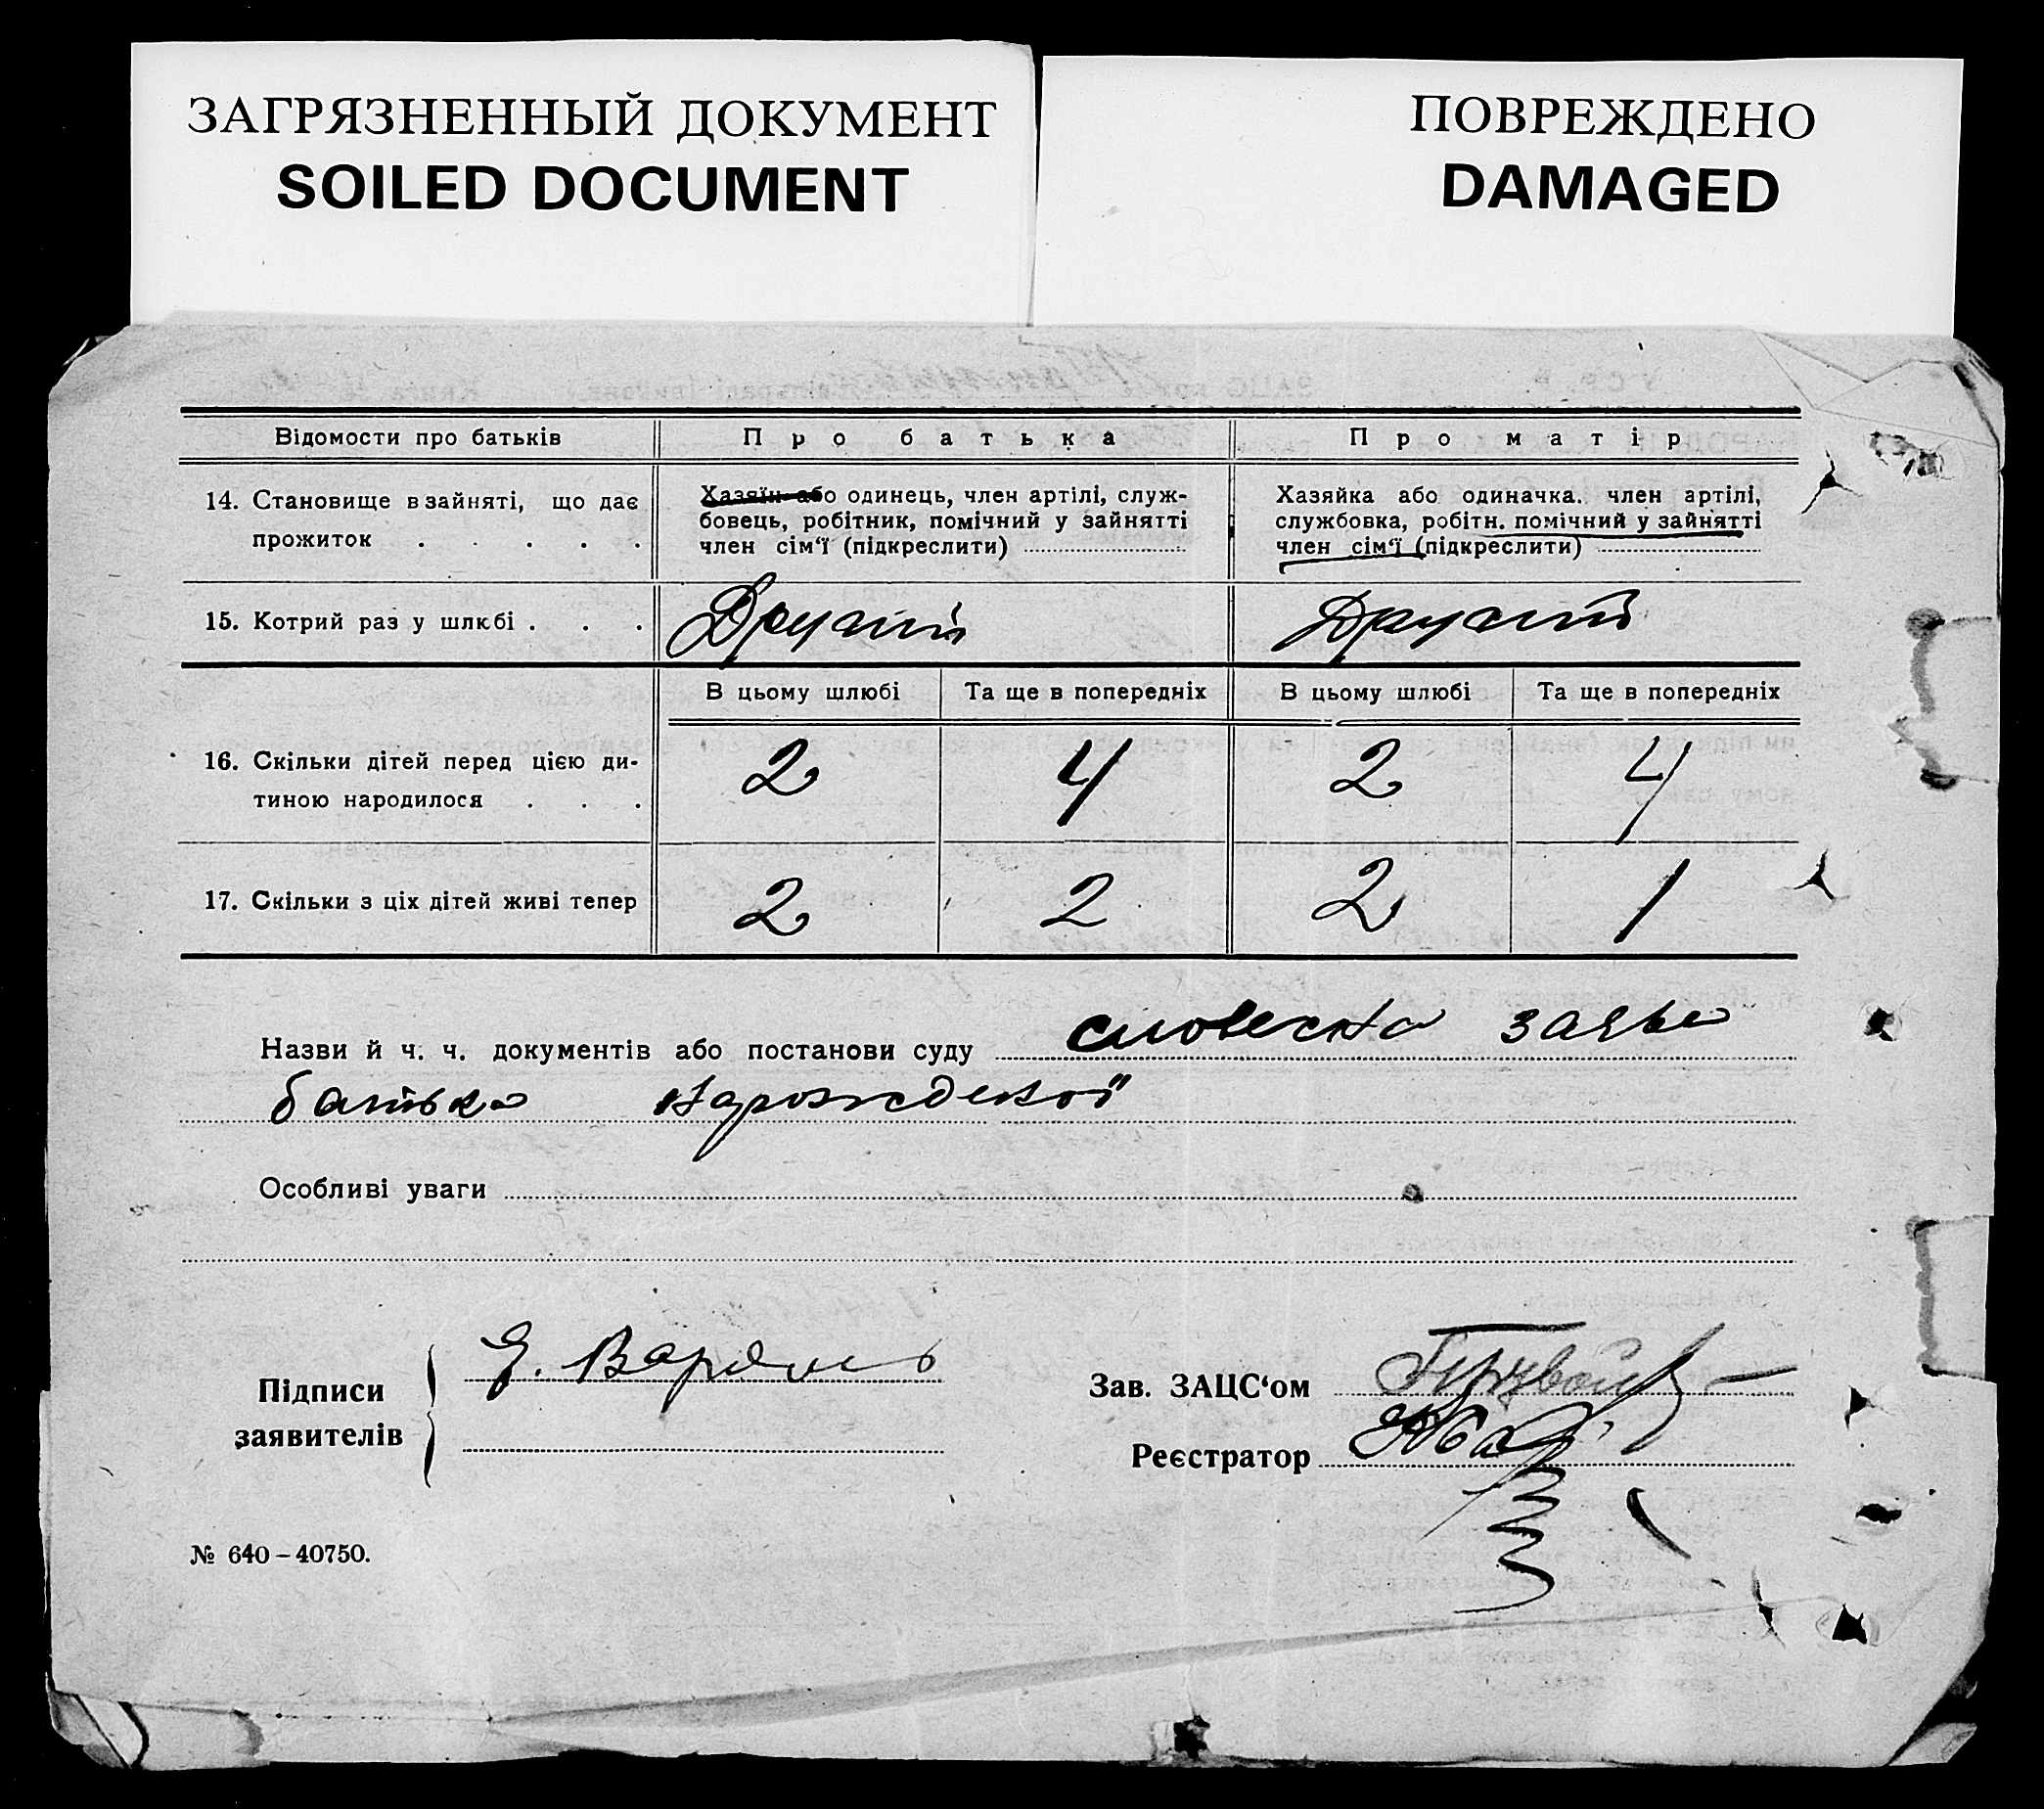 ЗАГРЯЗНЕННЫЙ ДОКУМЕНТ
SOILED DOCUMENT
ПОВРЕЖДЕНО
DAMAGED
Відомости про батьків
Про батька
Про матір
14. Становище в зайняті, що дає
прожиток . . . . .
Хазяїн або одинець, член артілі, служ-
бовець, робітник, помічний у зайнятті
член сім‘ї (підкреслити)
Хазяйка або одиначка. член артілі,
службовка, робітн. помічний у зайнятті
член сім‘ї (підкреслити)
15. Котрий раз у шлюбі . . .
Другий
Другий
В цьому шлюбі
Та ще в попередніх
В цьому шлюбі
Та ще в попередніх
16. Скільки дітей перед цією ди-
тиною народилося . . .
2
4
2
4
17. Скільки з ціх дітей живі тепер
2
2
2
1
Назви й ч. ч. документів або постанови суду словесна заява
батька нарожденої
Особливі уваги
Підписи
заявителів
Зав. ЗАЦС‘ом
Реєстратор
№ 640–40750.